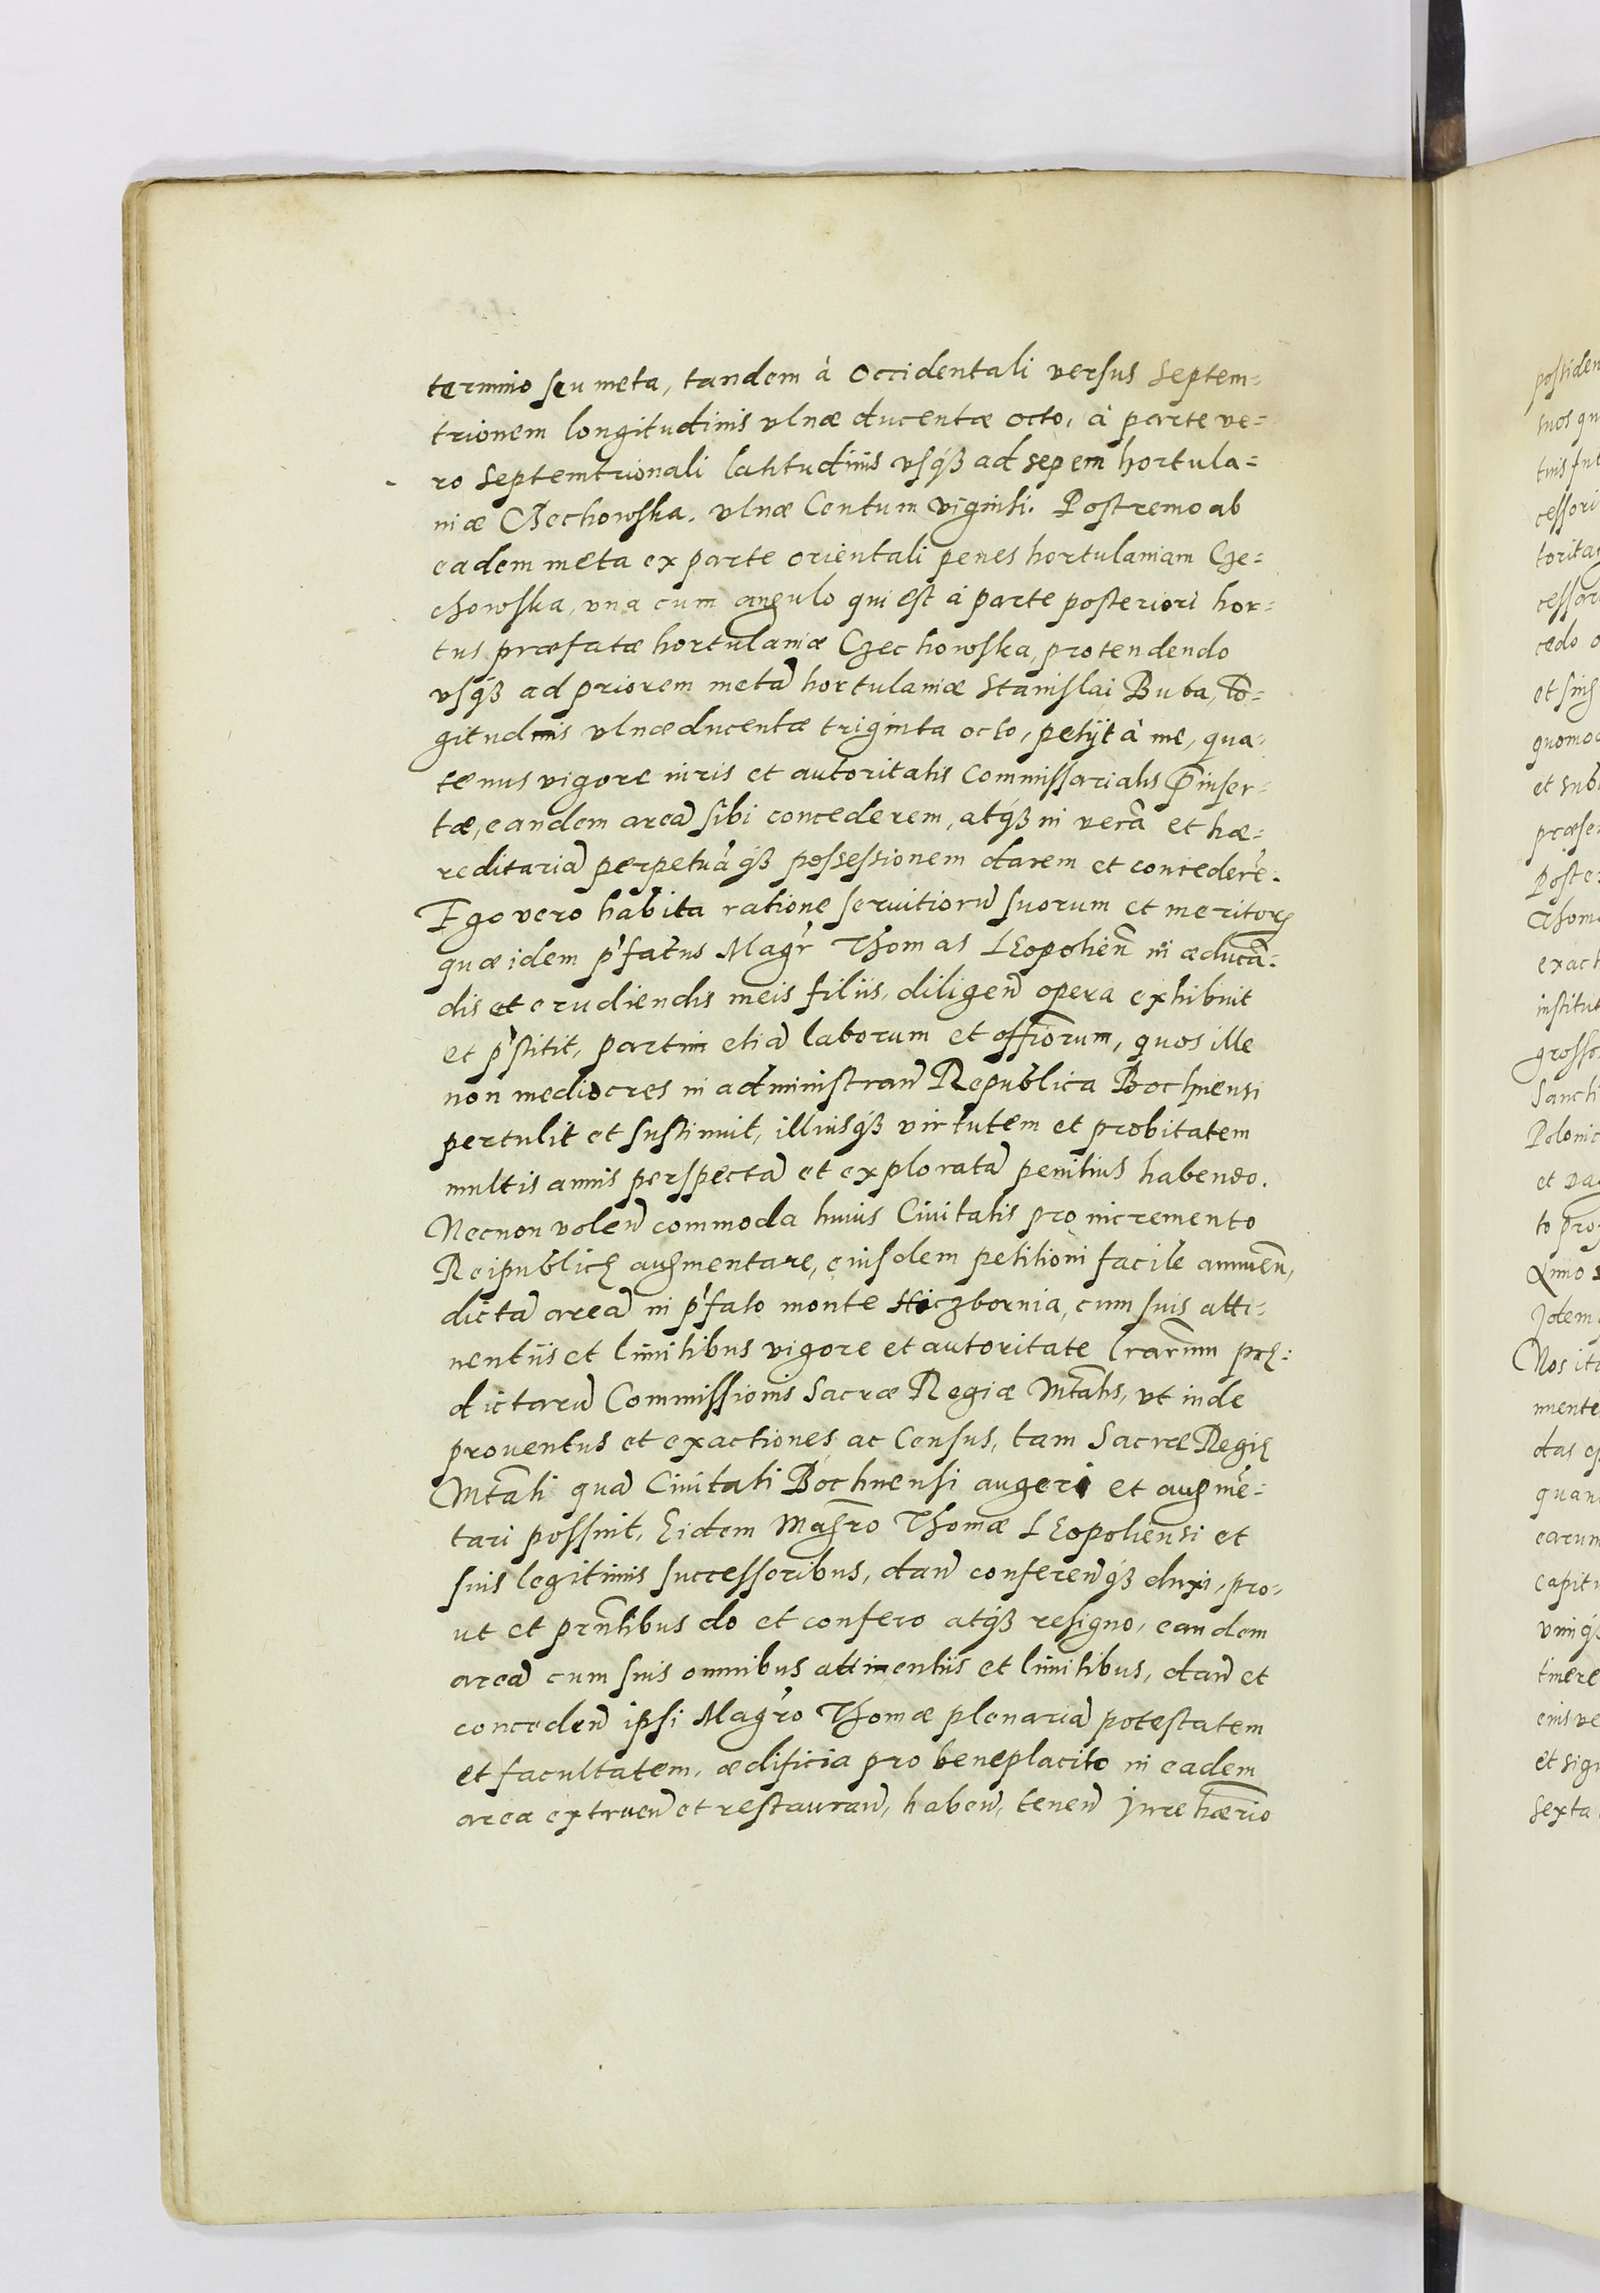 termino seu meta, tandem à Occidentali versus Septem=
trionem longitudinis vlnæ ducentæ octo, à parte ve=
ro Septemtrionali latitudinis vsqꝫ ad sepem hortula=
niæ Czechowska. vlnæ Centum viginti. Postremo ab
eadem meta ex parte orientali penes hortulaniam Cze=
chowska, vna cum angulo qui est à parte posteriori hor=
tus præfatæ hortulaniæ Czechowska, protendendo
vsqꝫ ad priorem metā hortulaniæ Stanislai Buba, lō=
gitudinis vlnæ ducentæ triginta octo, petijt à me, qua=
tenus vigore iuris et autoritatis Commissorialis p̄inser=
tæ, eandem areā sibi concederem, atqꝫ in verā et hæ=
reditariā perpetuā qꝫ possessionem darem et concederē.
Ego vero habita ratione seruitiorū suorum et meritorꝝ
quæ idem p̄fatus Magr̄ Thomas LEopolien̄ in æducā=
dis et erudiendis meis filiis, diligen̄ opera exhibuit
et p̄stitit, partim etiā laborum et offiorum, quos ille
non mediocres in administran̄ Republica Bochnensi
pertulit et sustinuit, illiusqꝫ virtutem et probitatem
multis annis perspectā et exploratā penitius habendo.
Necnon volen̄ commoda huius Ciuitatis pro incremento
Reipublicę augmentare, eiusdem petitioni facile annuen̄,
dictā areā in p̄fato monte Hiczbornia, cum suis atti=
nentiis et limitibus vigore et autoritate lr̄arum prę=
dictarū Commissionis Sacræ Regiæ Mt̄atis, vt inde
prouentus et exactiones ac Census, tam Sacræ Regię
Mt̄ati quā Ciuitati Bochnensi augeri et augmē=
tari possint, Eidem Magr̄o Thomæ LEopoliensi et
suis legitimis successoribus, dan̄ conferen̄qꝫ duxi, pro=
ut et prn̄tibus do et confero atqꝫ resigno, eandem
areā cum suis omnibus attinentiis et limitibus, dan̄ et
conceden̄ ipsi Magr̄o Thomæ plenariā potestatem
et facultatem, ædificia pro beneplacito in eadem
area extruen̄ et restauran̄, haben̄, tenen̄ Jure hær̄io